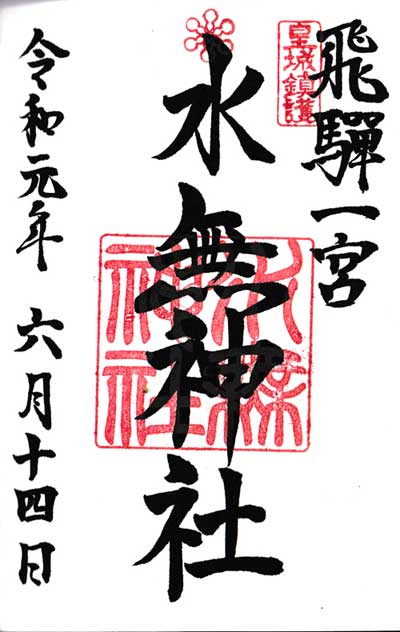 飛驒一宮
皇城鎮護
水無神社
水無神社
令和元年 六月十四日